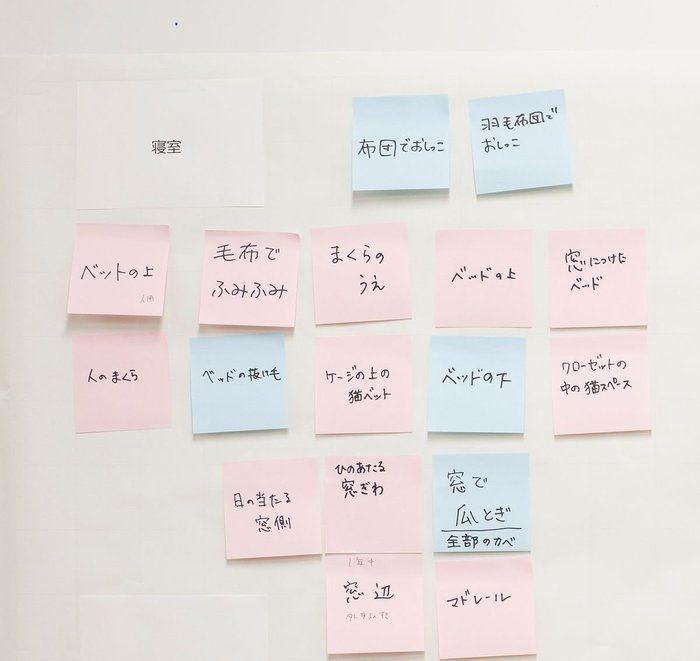 寝室
布団でおしっこ
羽毛布団で
おしっこ
ベットの上
人用
毛布で
ふみふみ
まくらの
うえ
ベッドの上
窓につけた
ベッド
人のまくら
ベッドの抜け毛
ケージの上の
猫ベット
ベッドの下
クローゼットの
中の猫スペース
日の当たる
窓側
ひのあたる
窓ぎわ
窓で
爪とぎ
全部のカベ
1年中
窓辺
マドレール